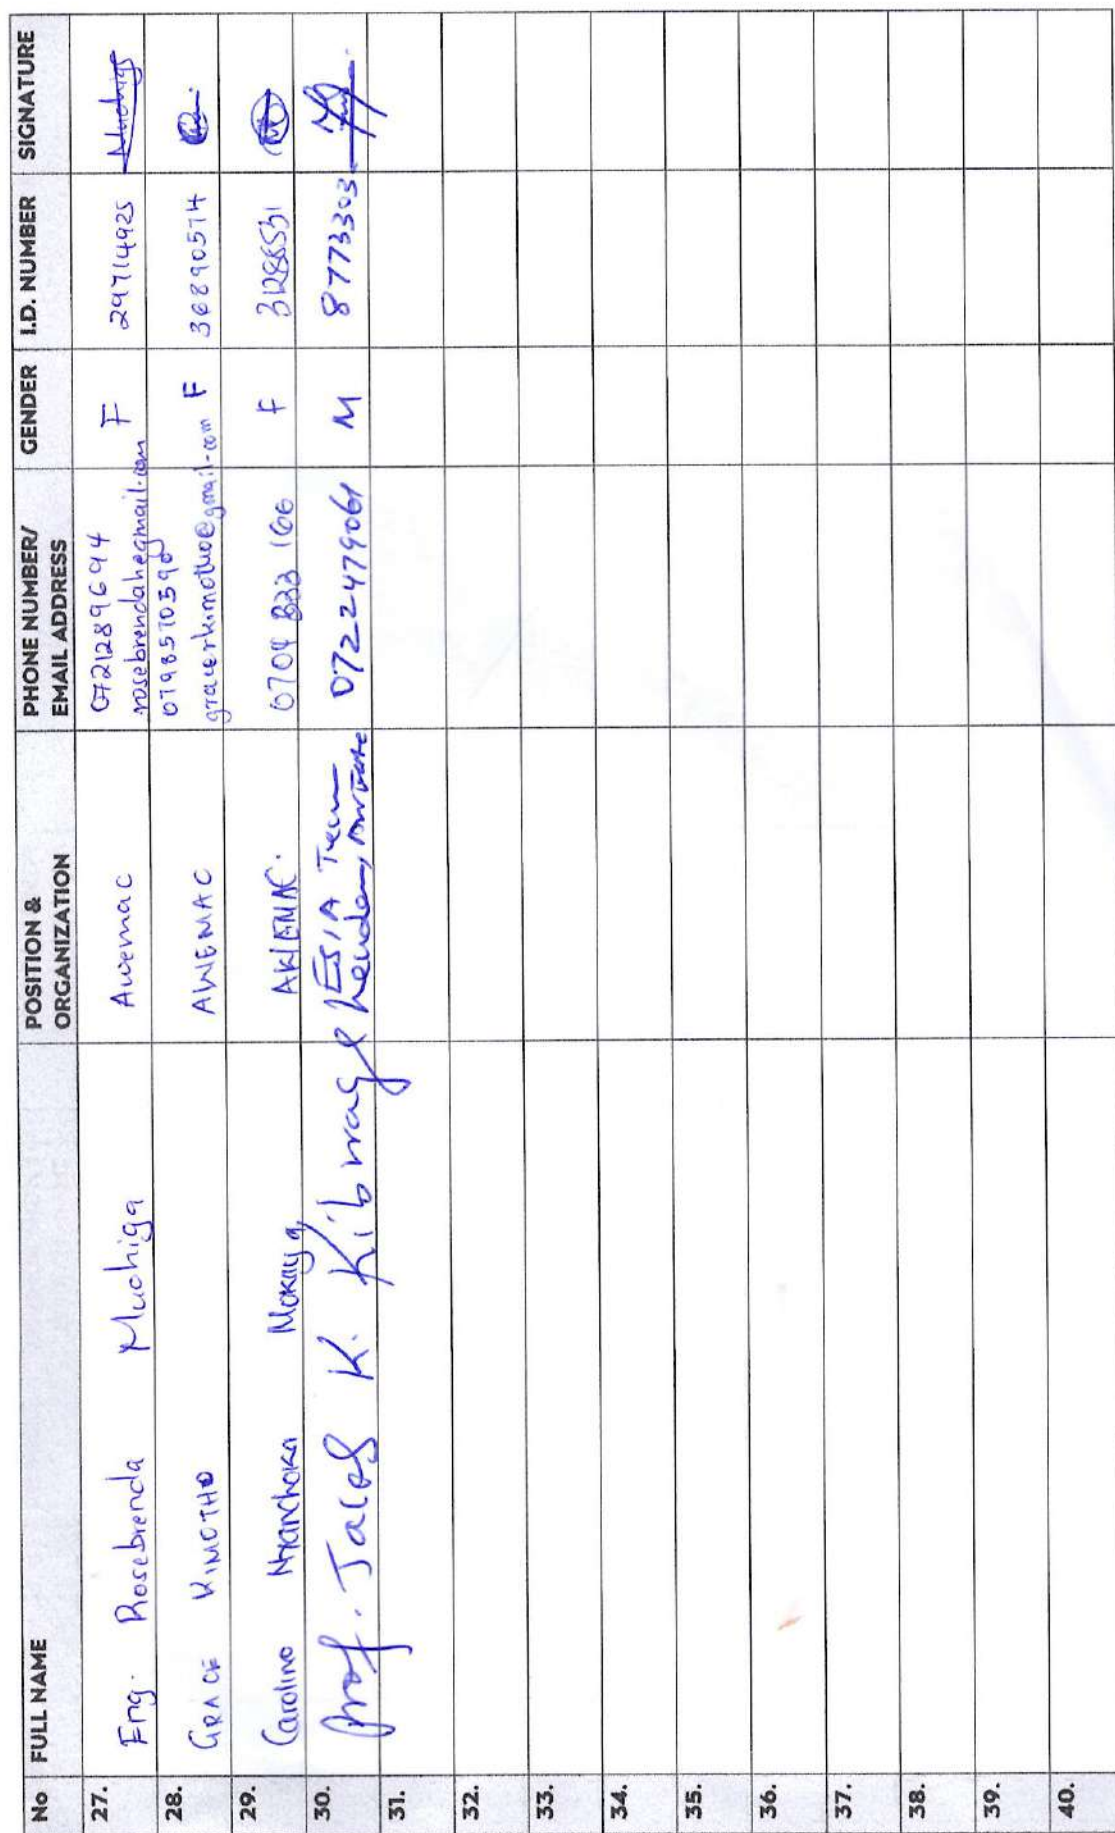 No FULL NAME POSITION & ORGANIZATION PHONE NUMBER/ EMAIL ADDRESS GENDER I.D. NUMBER SIGNATURE
27. Eng. Rosebrenda Muchiga Awemac 0721289694 rosebrendah@gmail.com F 29714925
28. GRACE KIMOTHO AWEMAC 0798570590 gracerkimotho@gmail.com F 36890574
29. Caroline Nyanchoka Mokaya AWEMAC. 0704 833 166 F 31286531
30. Prof. Jacob K. Kibwage ESIA Team Leader, 0722479061 M 8773303
31.
32.
33.
34.
35.
36.
37.
38.
39.
40.